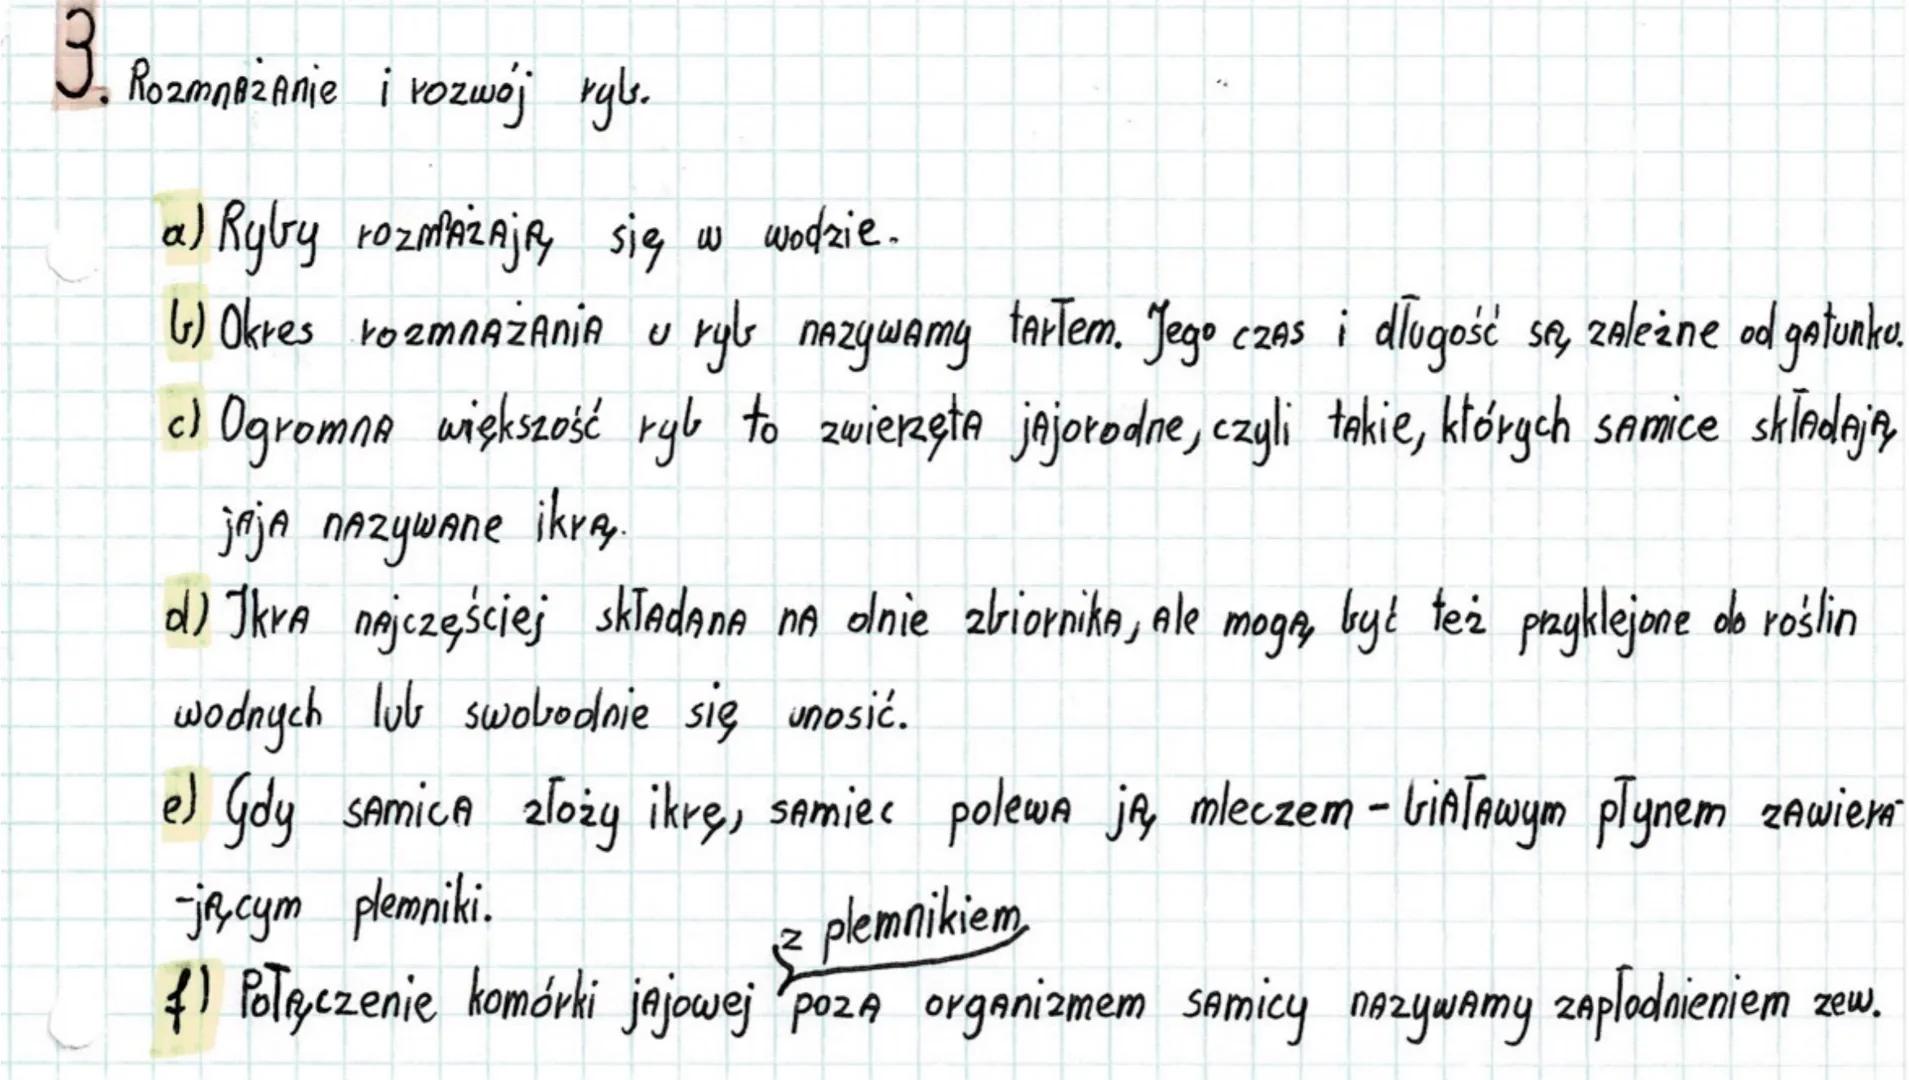 3. Rozmnażanie i rozwój ryb.
a) Ryby rozmażają się w wodzie.
b) Okres rozmnażania u ryb nazywamy tarłem. Jego czas i długość są zależne od gatunku.
c) Ogromna większość ryb to zwierzęta jajorodne, czyli takie, których samice składają
jaja nazywane ikrą.
d) Ikra najczęściej składana na dnie zbiornika, ale mogą być też przyklejone do roślin
wodnych lub swobodnie się unosić.
e) Gdy samica złoży ikrę, samiec polewa ją mleczem - białawym płynem zawiera-
-jącym plemniki.
z plemnikiem
f) Połączenie komórki jajowej poza organizmem samicy nazywamy zapłodnieniem zew.